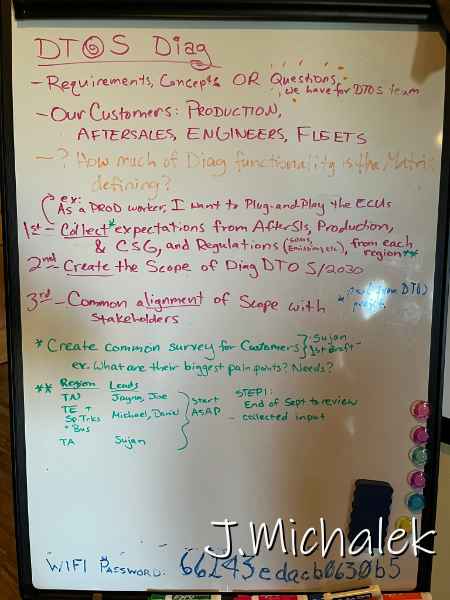 DTOS Diag
- Requirements, Concepts OR Questions,
we have for DTOS team
- Our Customers: PRODUCTION,
AFTERSALES, ENGINEERS, FLEETS
- ? How much of Diag functionality is the Matrix
defining?
ex:
As a PROD worker, I want to Plug-and-Play the ECUs
1st - Collect* expectations from AfterSls, Production,
& CSG, and Regulations (Emissions, etc), from each
region**
2nd - Create the Scope of Diag DTO S/2030
3rd - Common alignment of Scope with
stakeholders
* from DTOS
* Create common survey for Customers } - Sujan
1st draft -
ex. What are their biggest pain points? Needs?
** Region Leads
TN Jayna, Joe
TE + Sp.Trks + Bus Michael, Daniel
TA Sujan
Start
ASAP
STEP 1:
End of Sept to review
- collected input
J.Michalek
WIFI PASSWORD: 66143edacb0630b5